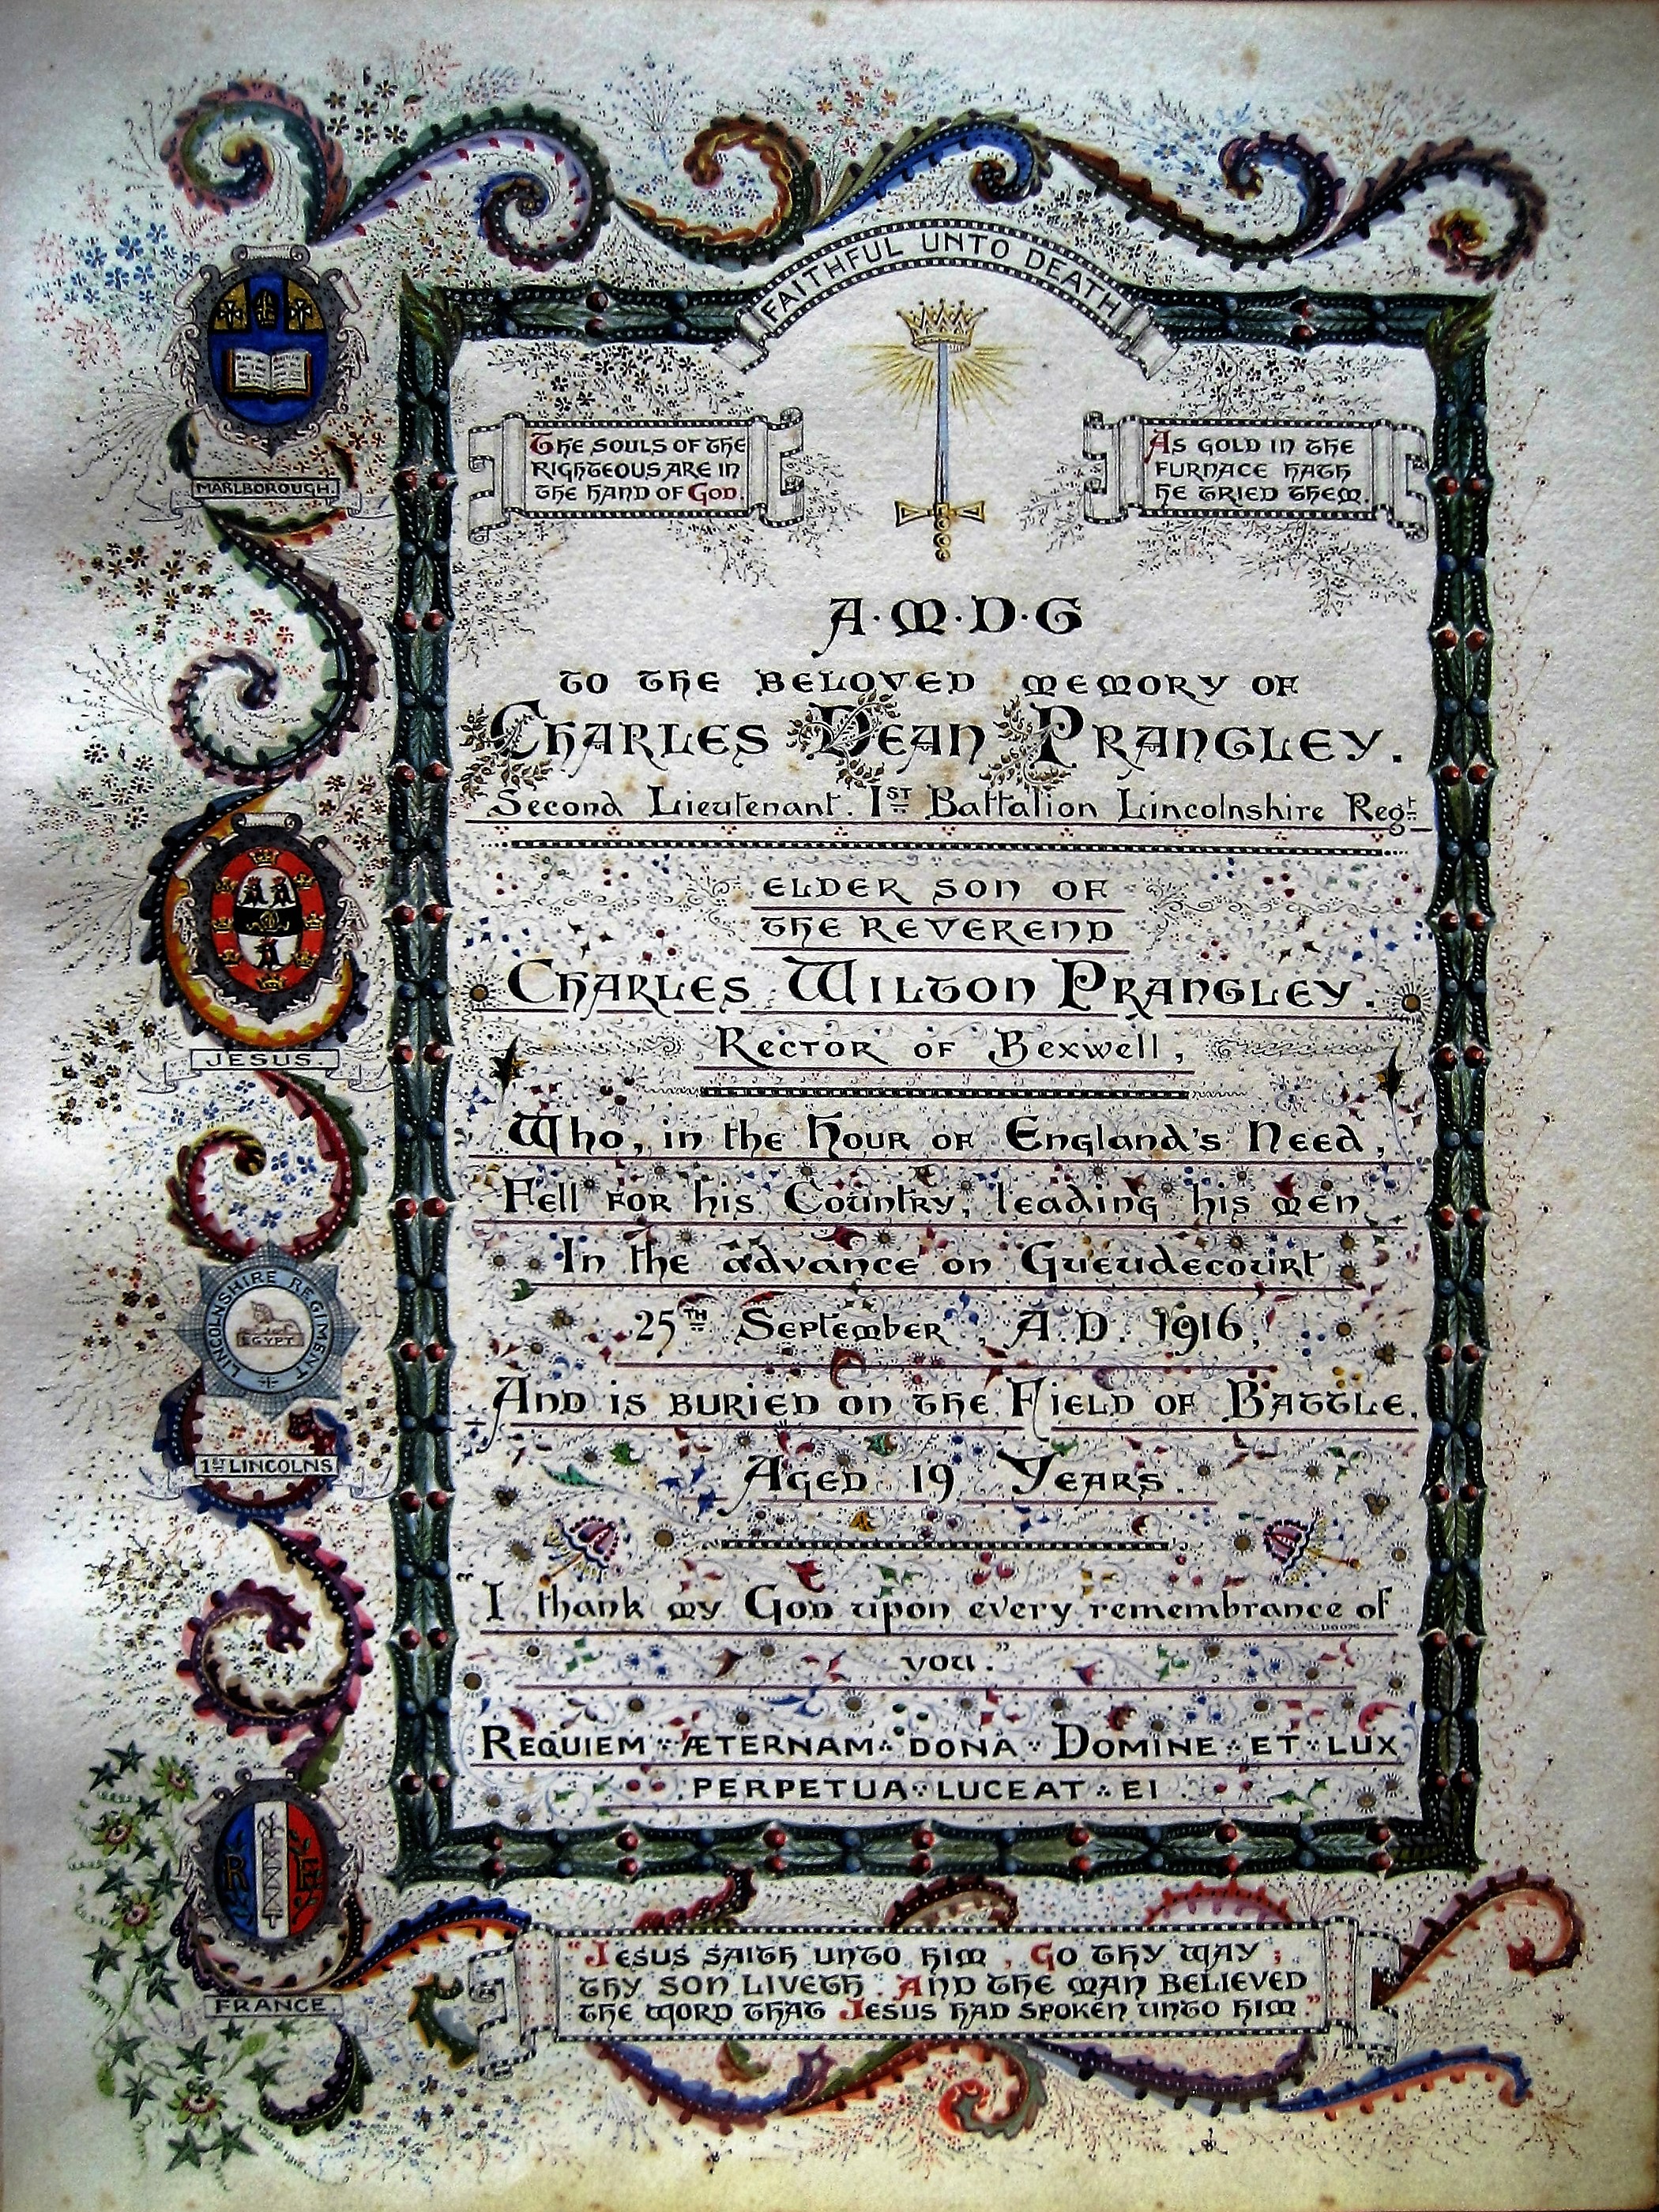 FAITHFUL UNTO DEATH
The souls of the
righteous are in
the hand of God.
As gold in the
furnace hath
he tried them.
A·M·D·G
to the beloved memory of
Charles Dean Prangley.
Second Lieutenant. 1ST Battalion Lincolnshire Regt
elder son of
the Reverend
Charles Wilton Prangley.
Rector of Bexwell,
Who, in the Hour of England's Need,
Fell for his Country, leading his men
In the advance on Gueudecourt
25TH September A.D. 1916,
And is buried on the Field of Battle.
Aged 19 Years.
"I thank my God upon every remembrance of
you."
Requiem æternam dona Domine et lux
perpetua luceat ei
"Jesus saith unto him, Go thy way;
thy son liveth. And the man believed
the word that Jesus had spoken unto him."
MARLBOROUGH.
JESUS.
LINCOLNSHIRE REGIMENT
EGYPT
1ST LINCOLNS
R F
FRANCE.